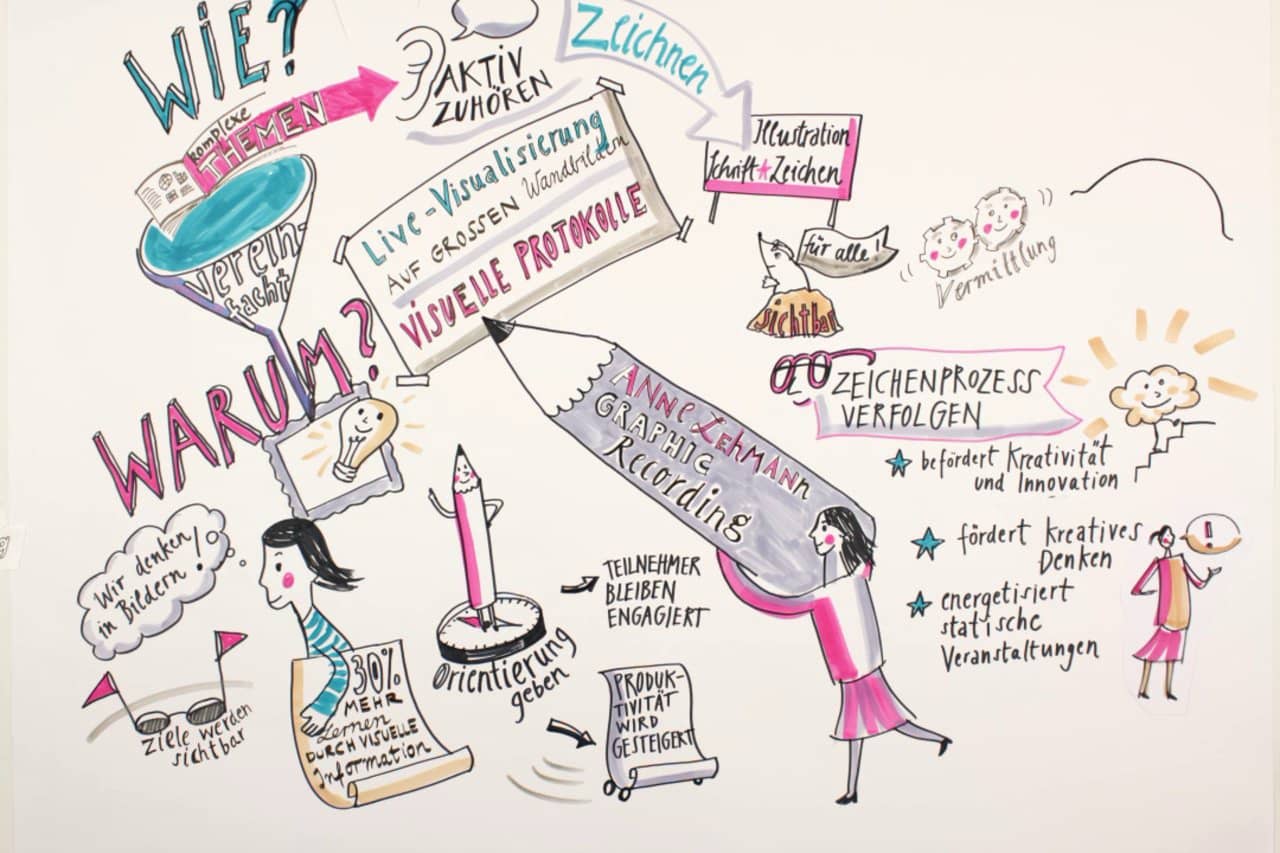 WIE?
komplexe
THEMEN
AKTIV
ZUHÖREN
Zeichnen
Illustration
Schrift Zeichen
für alle!
sichtbar
Vermittlung
verein-
facht
Live-Visualisierung
AUF GROSSEN Wandbildern
VISUELLE PROTOKOLLE
WARUM?
ANNE LEHMANN
GRAPHIC
Recording
ZEICHENPROZESS
VERFOLGEN
befördert Kreativität
und Innovation
fördert Kreatives
Denken
energetisiert
statische
Veranstaltungen
!
Wir denken
in Bildern!
Ziele werden
sichtbar
30%
MEHR
Lernen
DURCH VISUELLE
Information
Orientierung
geben
TEILNEHMER
BLEIBEN
ENGAGIERT
PRODUK-
TIVITÄT
WIRD
GESTEIGERT